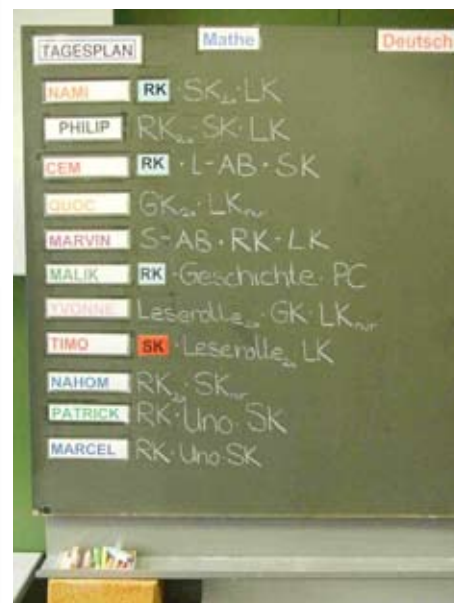 Mathe Deutsch
TAGESPLAN
NAMI RK SK · LK
PHILIP RK · SK · LK
CEM RK · L-AB · SK
QUOC GK · LK
MARVIN S-AB · RK · LK
MALIK RK · Geschichte · PC
YVONNE Leserolle · GK · LK
TIMO SK · Leserolle LK
NAHOM RK · SK
PATRICK RK · Uno · SK
MARCEL RK · Uno · SK